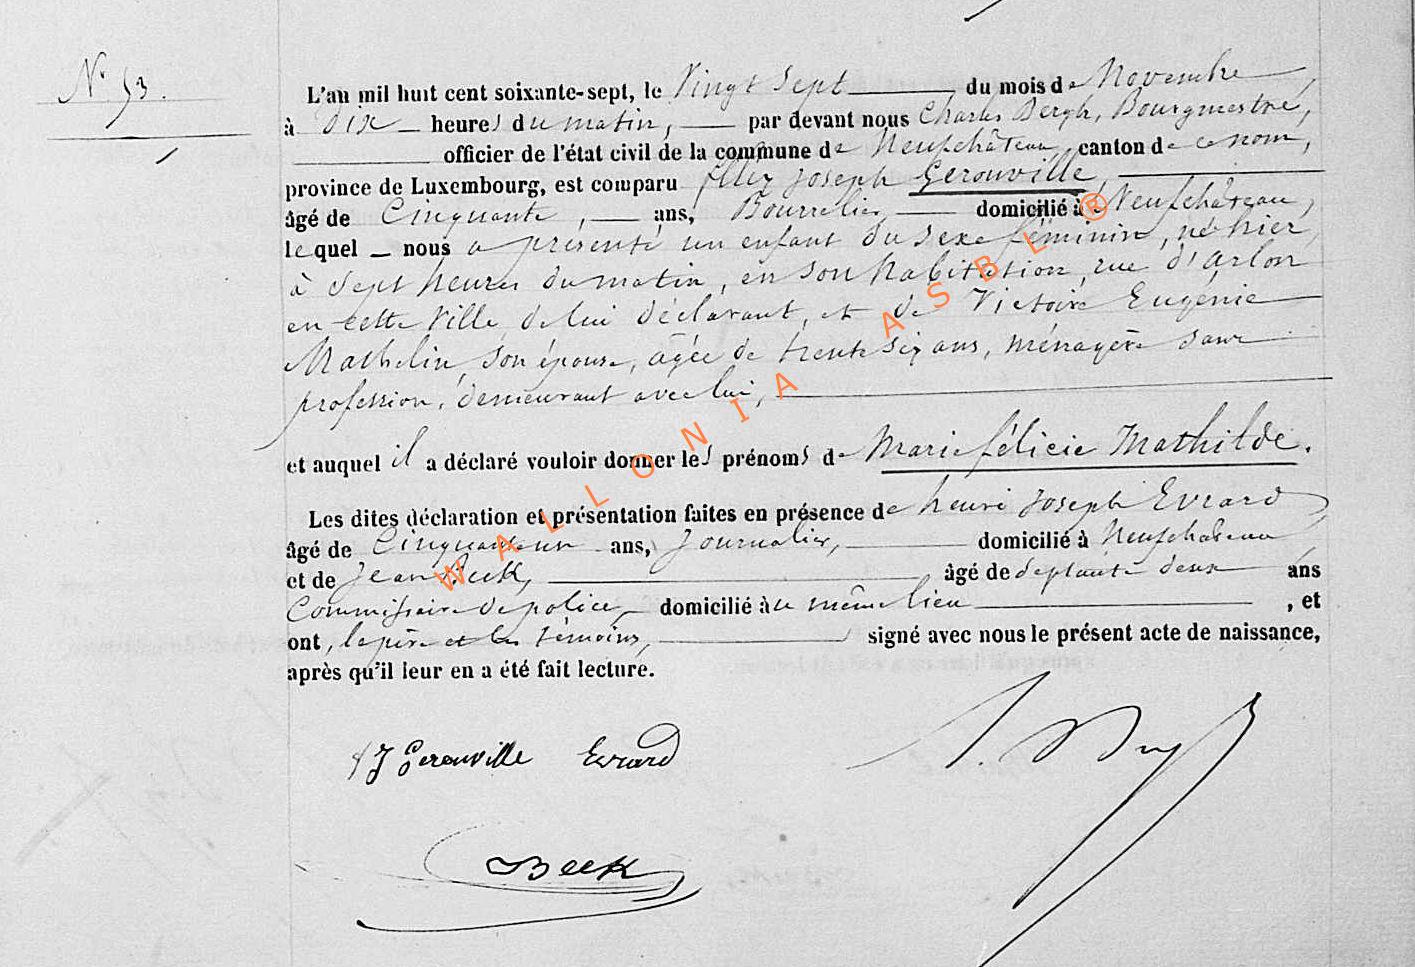 N° 53.
L'an mil huit cent soixante-sept, le Vingt Sept du mois de Novembre
à dix heures du matin, par devant nous Charles Bergh, Bourgmestre,
officier de l'état civil de la commune de Neufchâteau, canton de ce nom,
province de Luxembourg, est comparu félix Joseph Gerouville,
âgé de Cinquante, ans, Bourrelier, domicilié à Neufchâteau,
lequel nous a présenté un enfant du sexe féminin, né hier,
à Sept heures du matin, en son habitation, rue d'Arlon
en cette Ville, de lui déclarant, et de Victoire Eugénie
Mathelin, son épouse, agée de trente six ans, ménagère sans
profession, demeurant avec lui,
et auquel il a déclaré vouloir donner les prénoms de Marie félicie Mathilde.
Les dites déclaration et présentation faites en présence de henri Joseph Evrard
âgé de Cinquante un ans, Journalier, domicilié à Neufchateau
et de Jean Beck, âgé de Septante deux ans
Commissaire de police, domicilié au même lieu, et
ont, le père et les témoins, signé avec nous le présent acte de naissance,
après qu'il leur en a été fait lecture.
fJ Gerouville Evrard
Beck
WALLONIA ASBL ®